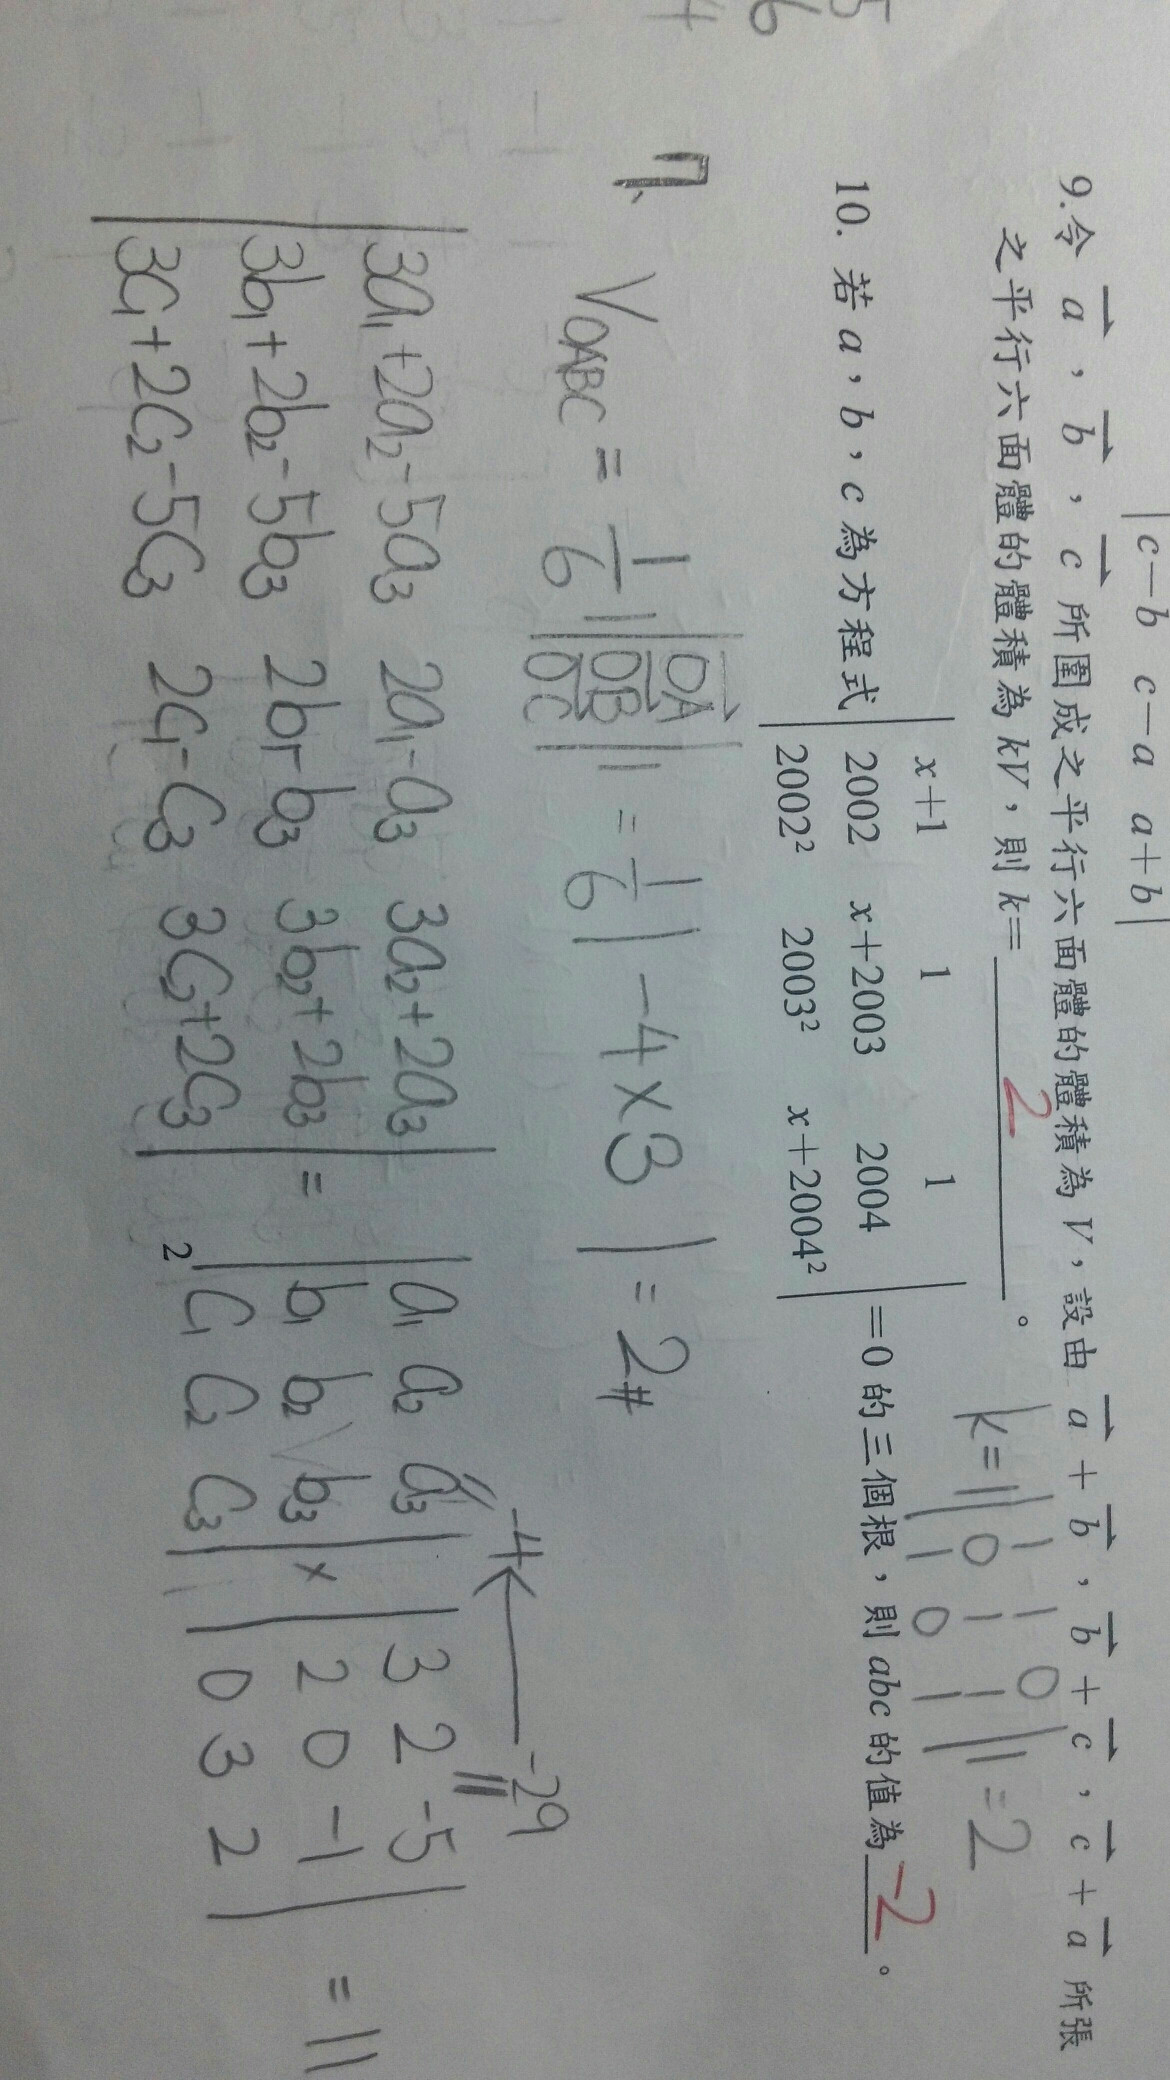 |c-b c-a a+b|
9.令 a⃗,b⃗,c⃗ 所圍成之平行六面體的體積為 V,設由 a⃗+b⃗,b⃗+c⃗,c⃗+a⃗ 所張
之平行六面體的體積為 kV,則 k= 2 。
k=||1 1 0|
|0 1 1|
|1 0 1||=2
10. 若 a,b,c 為方程式
|x+1 1 1|
|2002 x+2003 2004|
|2002² 2003² x+2004²|
=0 的三個根,則 abc 的值為 -2 。
7、 V OABC = 1/6 ||OA⃗|
|OB⃗|
|OC⃗|| = 1/6 |-4×3| = 2#
-4 ← -29
|3a₁+2a₂-5a₃ 2a₁-a₃ 3a₂+2a₃|
|3b₁+2b₂-5b₃ 2b₁-b₃ 3b₂+2b₃|
|3c₁+2c₂-5c₃ 2c₁-c₃ 3c₂+2c₃|
=
|a₁ a₂ a₃|
|b₁ b₂ b₃|
|c₁ c₂ c₃|
×
|3 2 -5|
|2 0 -1|
|0 3 2|
=11
2